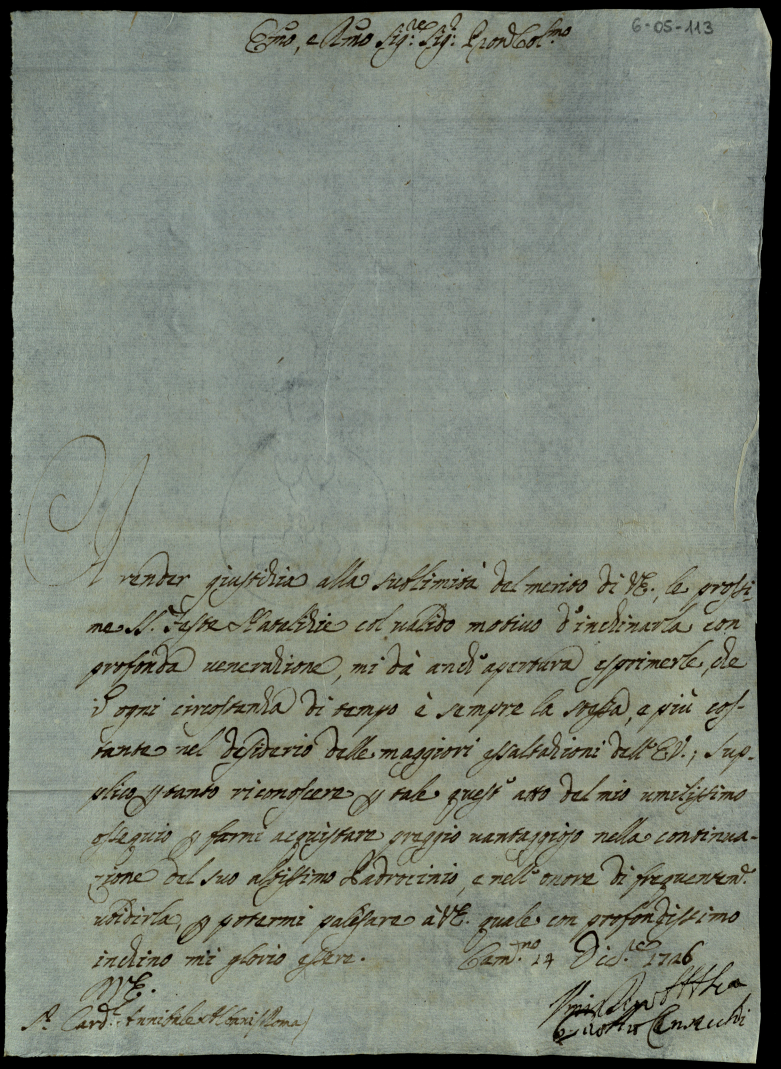 6-05-113
Emo, e Rmo Sig.re Sig.r Pron Col.mo
A render giustizia alla sublimità del merito di VE., le prossi-
me SS. Feste Natalizie col valido motivo d'inchinarla con
profonda venerazione, mi dà anch'apertura esprimerle, che
ogni circostanza di tempo è sempre la stessa, e più cos-
tante nel desiderio delle maggiori esaltazioni dell'EV.; sup-
plico ptanto riconoscere p tale quest'atto del mio umilissimo
ossequio p farmi acquistare preggio vantaggioso nella continua-
zione del suo altissimo Padrocinio, e nell'onore di frequentem.
ubidirla, p potermi palesare à VE. quale con profondissimo
inchino mi glorio essere. Cam.no 14 Dic.re 1726
VE.
Sr. Card. Annibale Albani (Roma)